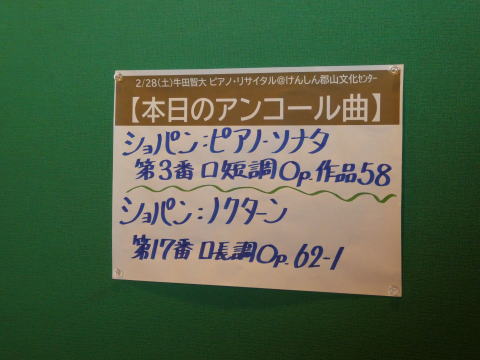 2/28(土)牛田智大 ピアノ・リサイタル@けんしん郡山文化センター
【本日のアンコール曲】
ショパン:ピアノ・ソナタ
第3番 ロ短調 Op. 作品58
ショパン:ノクターン
第17番 ロ長調 Op. 62-1